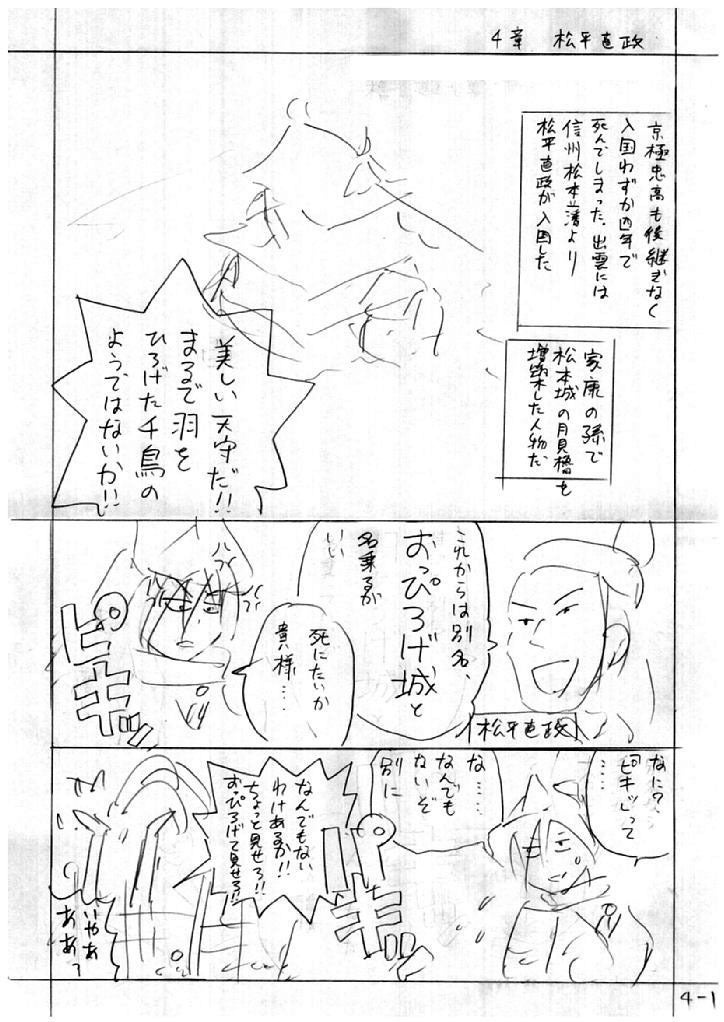 4章 松平直政
京極忠高も後継ぎなく
入国わずか四年で
死んでしまった。出雲には
信州松本藩より
松平直政が入国した
家康の孫で
松本城の月見櫓を
増築した人物だ
美しい天守だ!!
まるで羽を
ひろげた千鳥の
ようではないか!!
これからは別名、
おっぴろげ城と
名乗るが
いい
松平直政
死にたいか
貴様……
ピキッ
なに?…
「ピキッ」って
……
な……
なんでも
ないぞ
別に
ピキッ
なんでもない
わけあるか!!
ちょっと見せろ!!
おっぴろげて見せろ!!
いやあ
ああっ
4-1